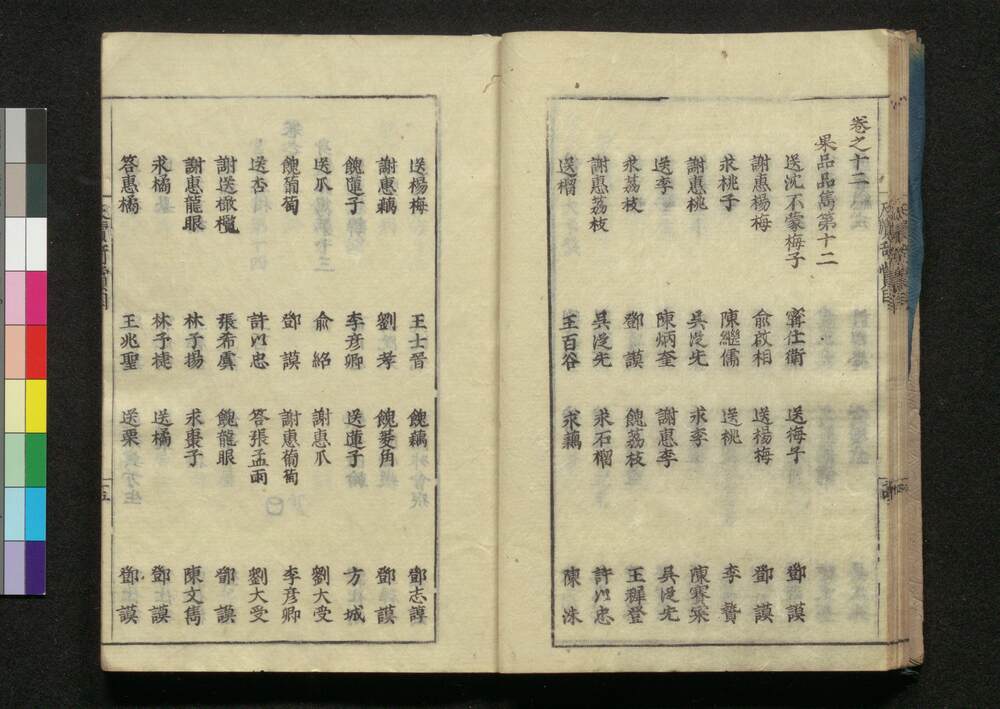 卷之十二
果品品篤第十二
送沈不蒙梅子 甯仕衛 送梅子 鄧謨
謝惠楊梅 俞啟相 送楊梅 鄧謨
求桃子 陳繼儒 送桃 李贄
謝惠桃 吳從先 求李 陳霂霂
送李 陳炳奎 謝惠李 吳從先
求荔枝 鄧謨 餽荔枝 王穉登
謝惠荔枝 吳從先 求石榴 許以忠
送榴 王百谷 求藕 陳洙
送楊梅 王士晉 餽藕 鄧志謨
謝惠藕 劉孝 餽菱角 鄧謨
餽蓮子 李彦卿 送蓮子 方社城
送瓜 俞紹 謝惠瓜 劉大受
餽葡萄 鄧謨 謝惠葡萄 李彦卿
送杏 許以忠 答張孟雨 劉大受
謝送橄欖 張希虞 餽龍眼 鄧謨
謝惠龍眼 林子揚 求棗子 陳文雋
求橘 林子㨗 送橘 鄧謨
答惠橘 王兆聖 送栗 鄧謨